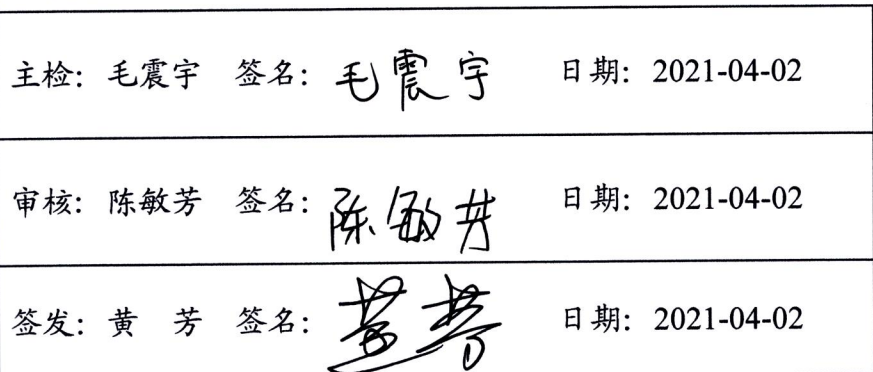 主检: 毛震宇 签名: 毛震宇 日期: 2021-04-02
审核: 陈敏芳 签名: 陈敏芳 日期: 2021-04-02
签发: 黄 芳 签名: 黄芳 日期: 2021-04-02